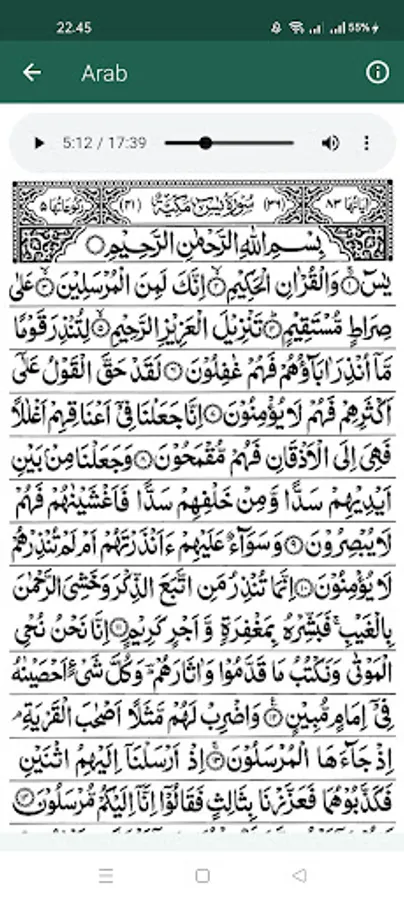 22.45
55%
Arab
5:12 / 17:39
اٰیَاتُهَا ۸۳ (۳۶) سُوْرَةُ یٰسٓ مَكِّیَّةٌ (۴۱) رُكُوْعَاتُهَا ۵
بِسْمِ اللّٰهِ الرَّحْمٰنِ الرَّحِیْمِ
یٰسٓ ۱ وَالْقُرْاٰنِ الْحَكِیْمِ ۲ اِنَّكَ لَمِنَ الْمُرْسَلِیْنَ ۳ عَلٰی
صِرَاطٍ مُّسْتَقِیْمٍ ۴ تَنْزِیْلَ الْعَزِیْزِ الرَّحِیْمِ ۵ لِتُنْذِرَ قَوْمًا
مَّاۤ اُنْذِرَ اٰبَآؤُهُمْ فَهُمْ غٰفِلُوْنَ ۶ لَقَدْ حَقَّ الْقَوْلُ عَلٰۤی
اَكْثَرِهِمْ فَهُمْ لَا یُؤْمِنُوْنَ ۷ اِنَّا جَعَلْنَا فِیْۤ اَعْنَاقِهِمْ اَغْلٰلًا
فَهِیَ اِلَی الْاَذْقَانِ فَهُمْ مُّقْمَحُوْنَ ۸ وَجَعَلْنَا مِنْۢ بَیْنِ
اَیْدِیْهِمْ سَدًّا وَّمِنْ خَلْفِهِمْ سَدًّا فَاَغْشَیْنٰهُمْ فَهُمْ
لَا یُبْصِرُوْنَ ۹ وَسَوَآءٌ عَلَیْهِمْ ءَاَنْذَرْتَهُمْ اَمْ لَمْ تُنْذِرْهُمْ
لَا یُؤْمِنُوْنَ ۱۰ اِنَّمَا تُنْذِرُ مَنِ اتَّبَعَ الذِّكْرَ وَخَشِیَ الرَّحْمٰنَ
بِالْغَیْبِ ۚ فَبَشِّرْهُ بِمَغْفِرَةٍ وَّاَجْرٍ كَرِیْمٍ ۱۱ اِنَّا نَحْنُ نُحْیِ
الْمَوْتٰی وَنَكْتُبُ مَا قَدَّمُوْا وَاٰثَارَهُمْ ؕ وَكُلَّ شَیْءٍ اَحْصَیْنٰهُ
فِیْۤ اِمَامٍ مُّبِیْنٍ ۱۲ وَاضْرِبْ لَهُمْ مَّثَلًا اَصْحٰبَ الْقَرْیَةِ ۘ
اِذْ جَآءَهَا الْمُرْسَلُوْنَ ۱۳ اِذْ اَرْسَلْنَاۤ اِلَیْهِمُ اثْنَیْنِ
فَكَذَّبُوْهُمَا فَعَزَّزْنَا بِثَالِثٍ فَقَالُوْۤا اِنَّاۤ اِلَیْكُمْ مُّرْسَلُوْنَ ۱۴